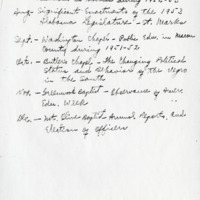 Aug.- Significant Enactments of the 1953
Alabama Legislature - St. Marks
Sept. - Washington Chapel - Public Educ. in Macon
County during 1951-52
Oct. - Butler's Chapel - The Changing Political
Status and Behavior of the Negro
in the South
Nov. - Greenwood Baptist - Observance of
Edu. Week
Dec. - Mt. Olive Baptist Annual Reports, and
Election of Officers